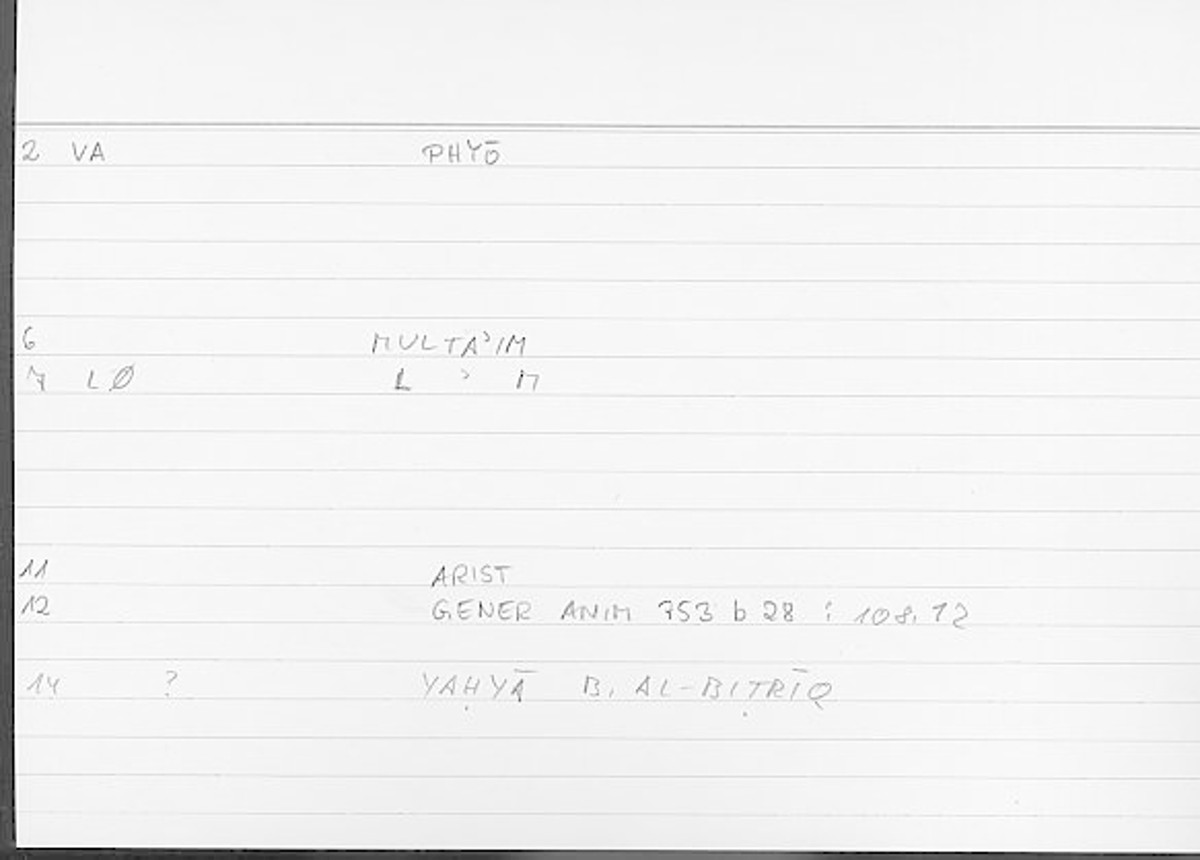 2 VA PHYŌ
6 MULTAʾIM
7 LØ L ʾ M
11 ARIST
12 GENER ANIM 753 b 28 : 108.12
14 ? YAḤYĀ B. AL-BIṬRĪQ